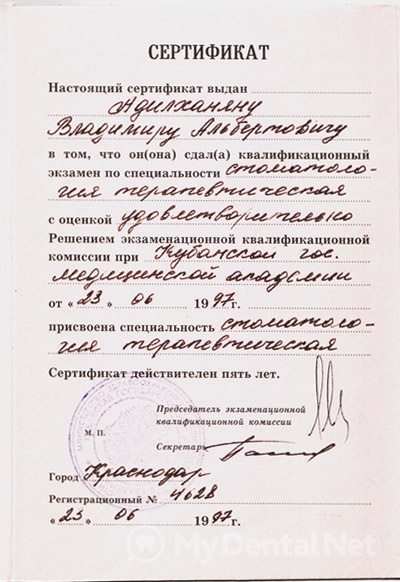 СЕРТИФИКАТ
Настоящий сертификат выдан
Адилханяну
Владимиру Альбертовичу
в том, что он(она) сдал(а) квалификационный
экзамен по специальности стоматоло-
гия терапевтическая
с оценкой удовлетворительно
Решением экзаменационной квалификационной
комиссии при Кубанской гос.
медицинской академии
от « 23 » 06 1997 г.
присвоена специальность стоматоло-
гия терапевтическая
Сертификат действителен пять лет.
Председатель экзаменационной
квалификационной комиссии
М. П.
Секретарь
Город Краснодар
Регистрационный № 4628
« 23 » 06 1997 г.
MyDentalNet